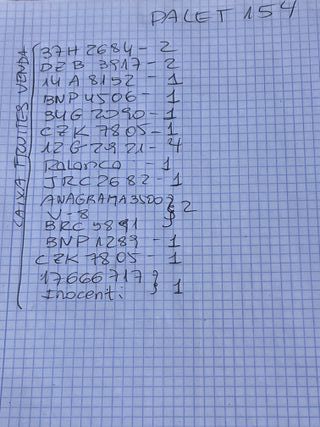 PALET 154
CAIXA FRUITES VENDA
37H 2684 - 2
DZB 3917 - 2
14A 8152 - 1
BNP 4506 - 1
B4G 2090 - 1
CZK 7805 - 1
12G 2921 - 4
Polonco - 1
JRC 2682 - 1
ANAGRAMA 3500
V-8 } 2
BRC 5891
BNP 1289 - 1
CZK 7805 - 1
17666717 } 1
Inocenti